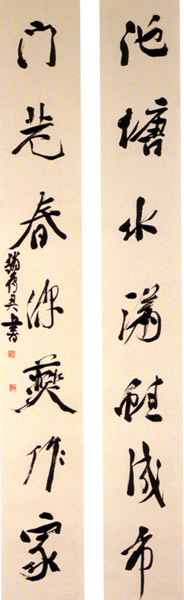 池塘水满蛙成市
门巷春深燕作家